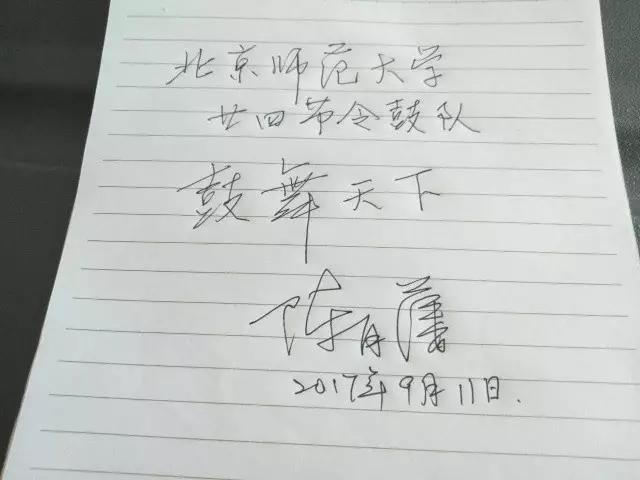 北京师范大学
廿四节令鼓队
鼓舞天下
陈再藩
2017年9月11日.